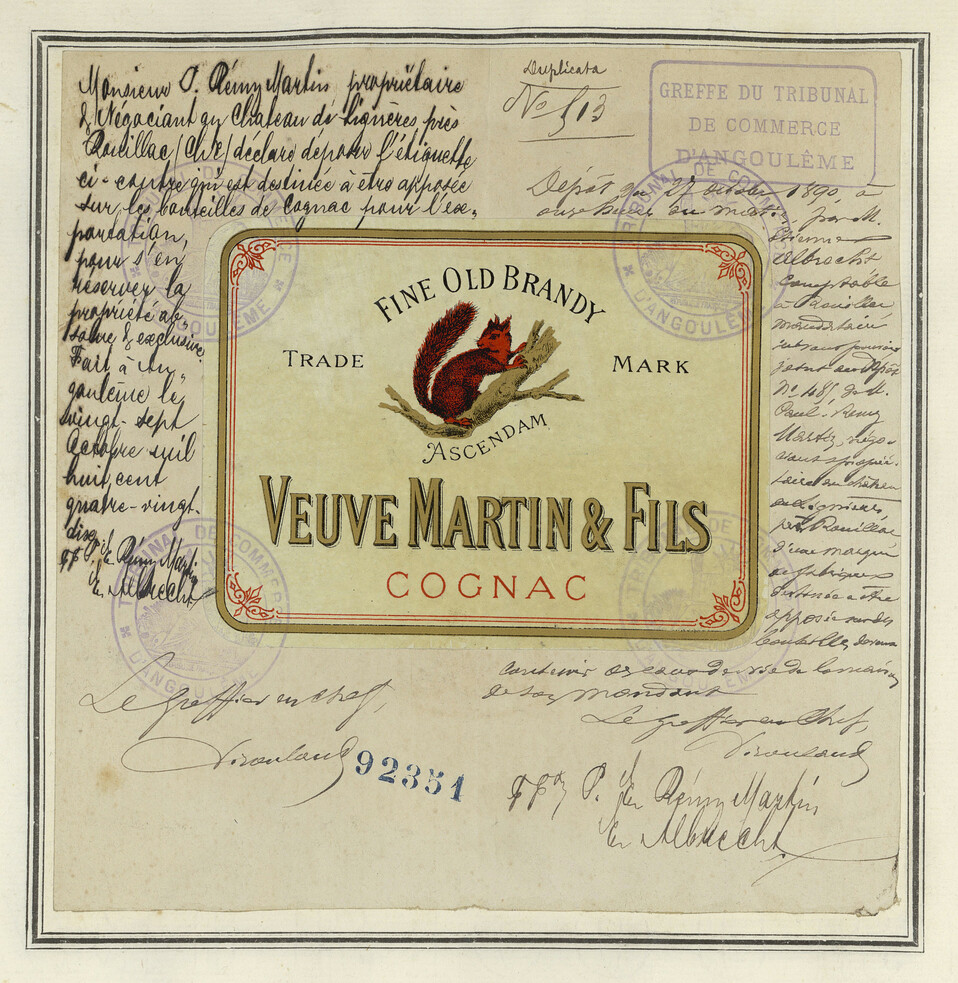 Monsieur P. Rémy Martin propriétaire
& Négociant au Chateau de Lignères près
Rouillac (Ch.te) déclare déposer l'étiquette
ci-contre qui est destinée à être apposée
sur les bouteilles de Cognac pour l'ex-
portation,
pour s'en
réserver la
propriété ab-
solue & exclusive
Fait à An-
goulême le
vingt-sept
Octobre mil
huit cent
quatre-vingt-
dix
P. E. Rémy Martin
E. Albrecht
Duplicata
No 513
GREFFE DU TRIBUNAL
DE COMMERCE
D'ANGOULÊME
Dépôt du 27 octobre 1890, à
onze heures du matin, par M.
Etienne
Albrecht
Comptable
à Rouillac
mandataire
suivant pouvoir
joint au dépôt
No 481, de M.
Paul-Rémy
Martin, négo-
ciant & proprié-
taire au château
de Lignères
près Rouillac
d'une marque
de fabrique
destinée à être
apposée sur des
bouteilles devant
contenir des eaux-de-vie de la maison
de son mandant
FINE OLD BRANDY
TRADE MARK
ASCENDAM
VEUVE MARTIN & FILS
COGNAC
TRIBUNAL DE COMMERCE
D'ANGOULÊME
TRIBUNAL DE COMMERCE
D'ANGOULÊME
TRIBUNAL DE COMMERCE
D'ANGOULÊME
TRIBUNAL DE COMMERCE
D'ANGOULÊME
Le Greffier en Chef,
Le Greffier en Chef,
92351
P. E. Rémy Martin
E. Albrecht